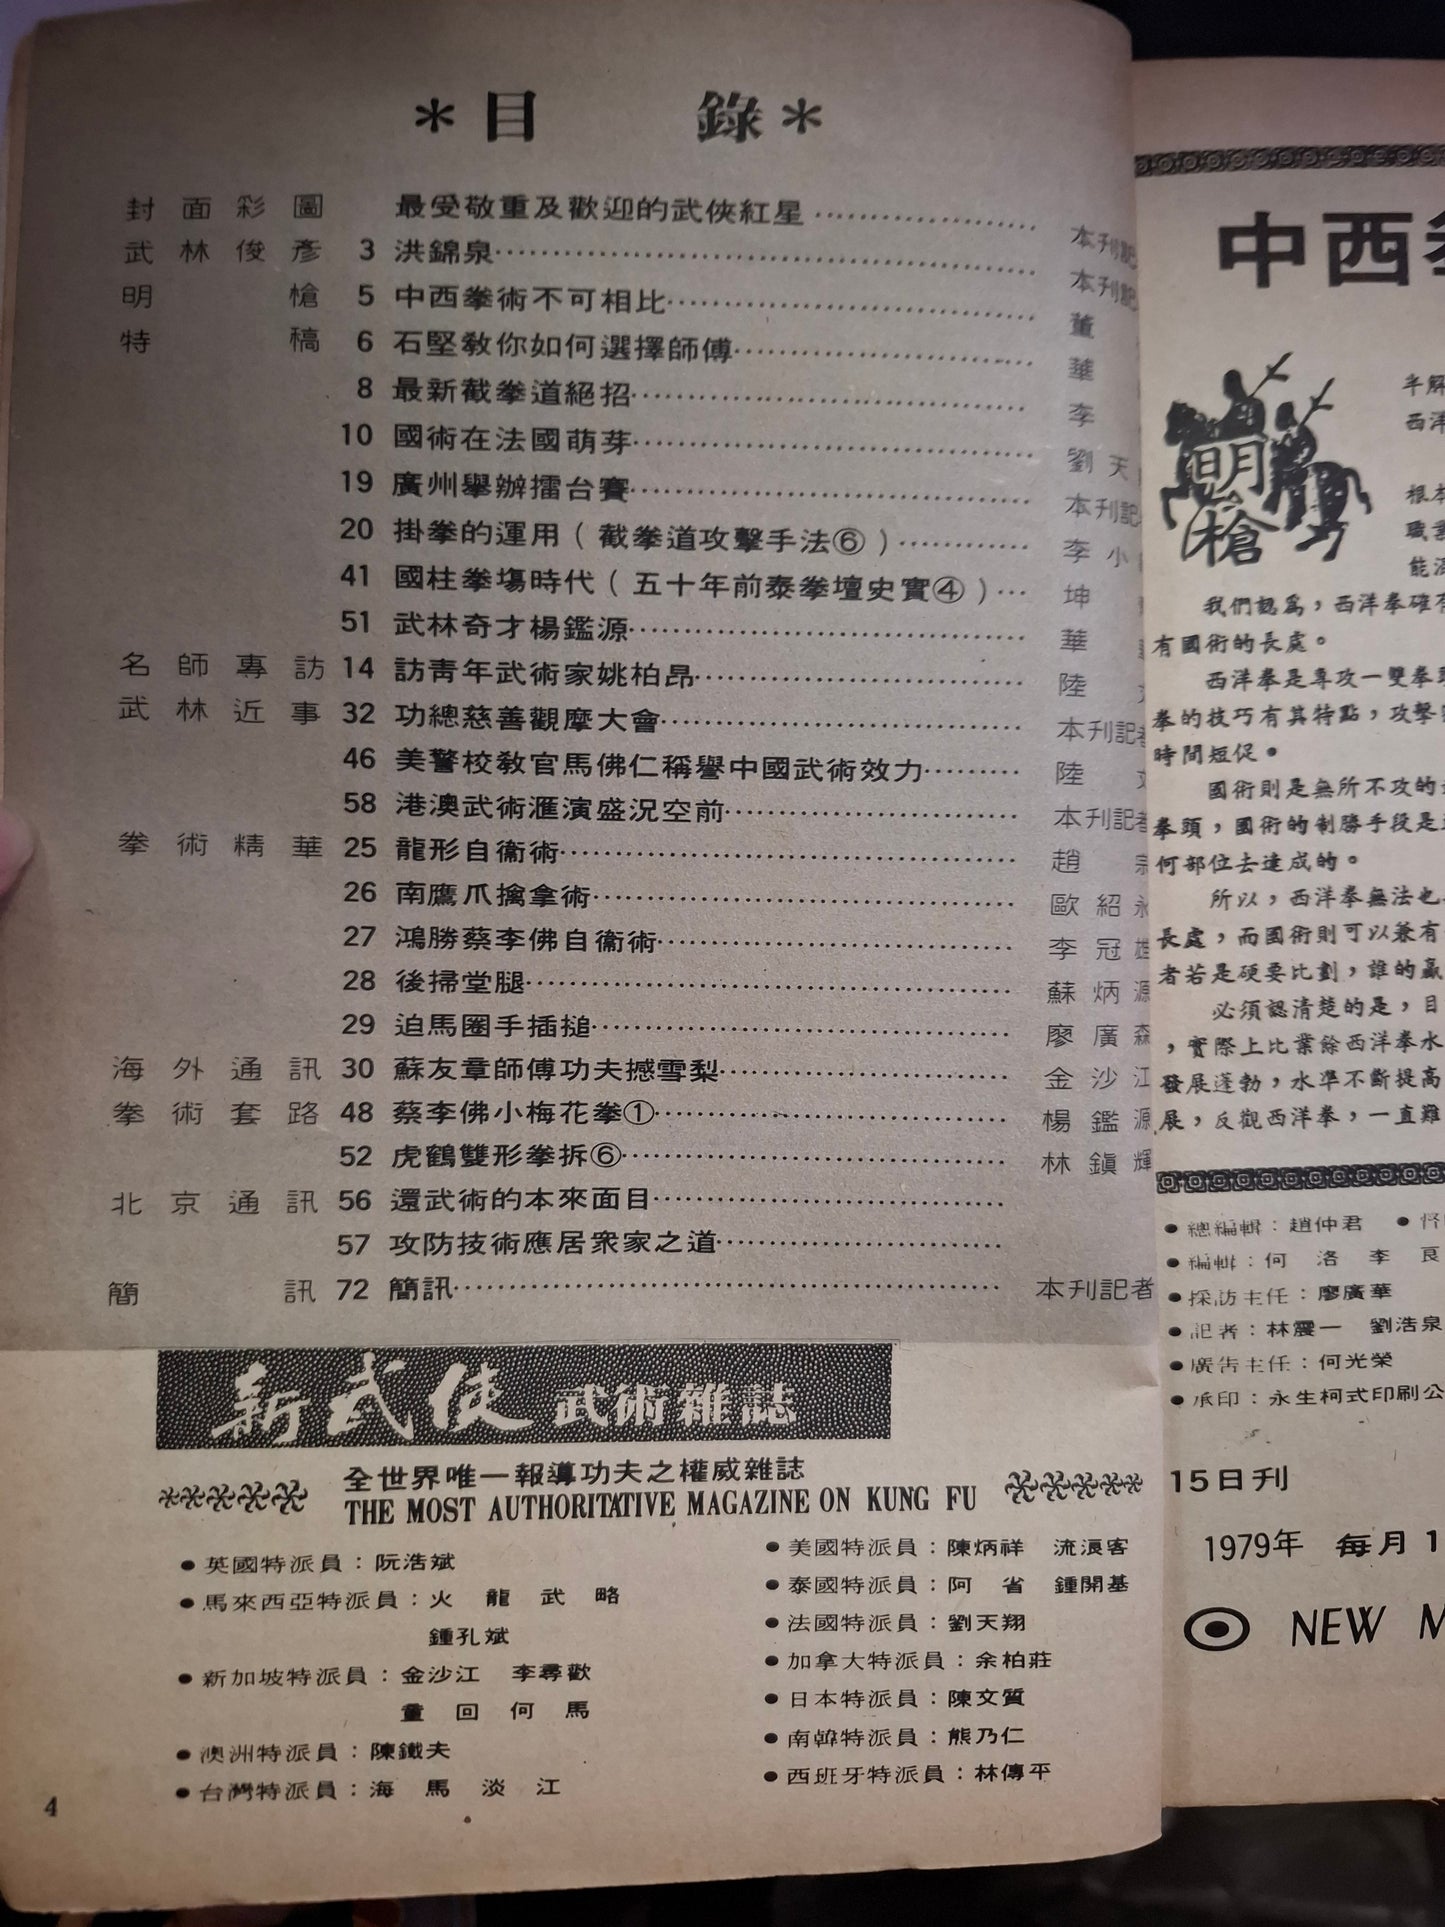 ＊目 錄＊
封面彩圖 最受敬重及歡迎的武俠紅星 本刊記
武林俊彥 3 洪錦泉 本刊記
明槍 5 中西拳術不可相比 董
特稿 6 石堅教你如何選擇師傅 華
8 最新截拳道絕招 李
10 國術在法國萌芽 劉天
19 廣州舉辦擂台賽 本刊記
20 掛拳的運用（截拳道攻擊手法⑥） 李小
41 國柱拳塲時代（五十年前泰拳壇史實④） 坤
51 武林奇才楊鑑源 華
名師專訪 14 訪青年武術家姚柏昂 陸
武林近事 32 功總慈善觀摩大會 本刊記者
46 美警校教官馬佛仁稱譽中國武術效力 陸
58 港澳武術滙演盛況空前 本刊記者
拳術精華 25 龍形自衞術 趙
26 南鷹爪擒拿術 歐紹永
27 鴻勝蔡李佛自衞術 李冠雄
28 後掃堂腿 蘇炳源
29 迫馬圈手插搥 廖廣森
海外通訊 30 蘇友章師傅功夫撼雪梨 金沙江
拳術套路 48 蔡李佛小梅花拳① 楊鑑源
52 虎鶴雙形拳拆⑥ 林鎮輝
北京通訊 56 還武術的本來面目
57 攻防技術應居衆家之道
簡訊 72 簡訊 本刊記者
新武俠 武術雜誌
全世界唯一報導功夫之權威雜誌
THE MOST AUTHORITATIVE MAGAZINE ON KUNG FU
●英國特派員：阮浩斌
●馬來西亞特派員：火龍 武略
鍾孔斌
●新加坡特派員：金沙江 李尋歡
童回 何馬
●澳洲特派員：陳鐵夫
●台灣特派員：海馬 淡江
●美國特派員：陳炳祥 流浪客
●泰國特派員：阿省 鍾開基
●法國特派員：劉天翔
●加拿大特派員：余柏莊
●日本特派員：陳文質
●南韓特派員：熊乃仁
●西班牙特派員：林傳平
4
中西
明槍
半解
西洋
根本
職業
能
我們認爲，西洋拳確有
有國術的長處。
西洋拳是專攻一雙拳頭
拳的技巧有其特點，攻擊
時間短促。
國術則是無所不攻的
拳頭，國術的制勝手段是
何部位去達成的。
所以，西洋拳無法也
長處，而國術則可以兼有
者若是硬要比劃，誰的贏
必須認清楚的是，目
，實際上比業餘西洋拳水
發展蓬勃，水準不斷提高
展，反觀西洋拳，一直難
●總編輯：趙仲君 ●督
●編輯：何洛 李良
●採訪主任：廖廣華
●記者：林震一 劉浩泉
●廣告主任：何光榮
●承印：永生柯式印刷公
15日刊
1979年 每月1
NEW M